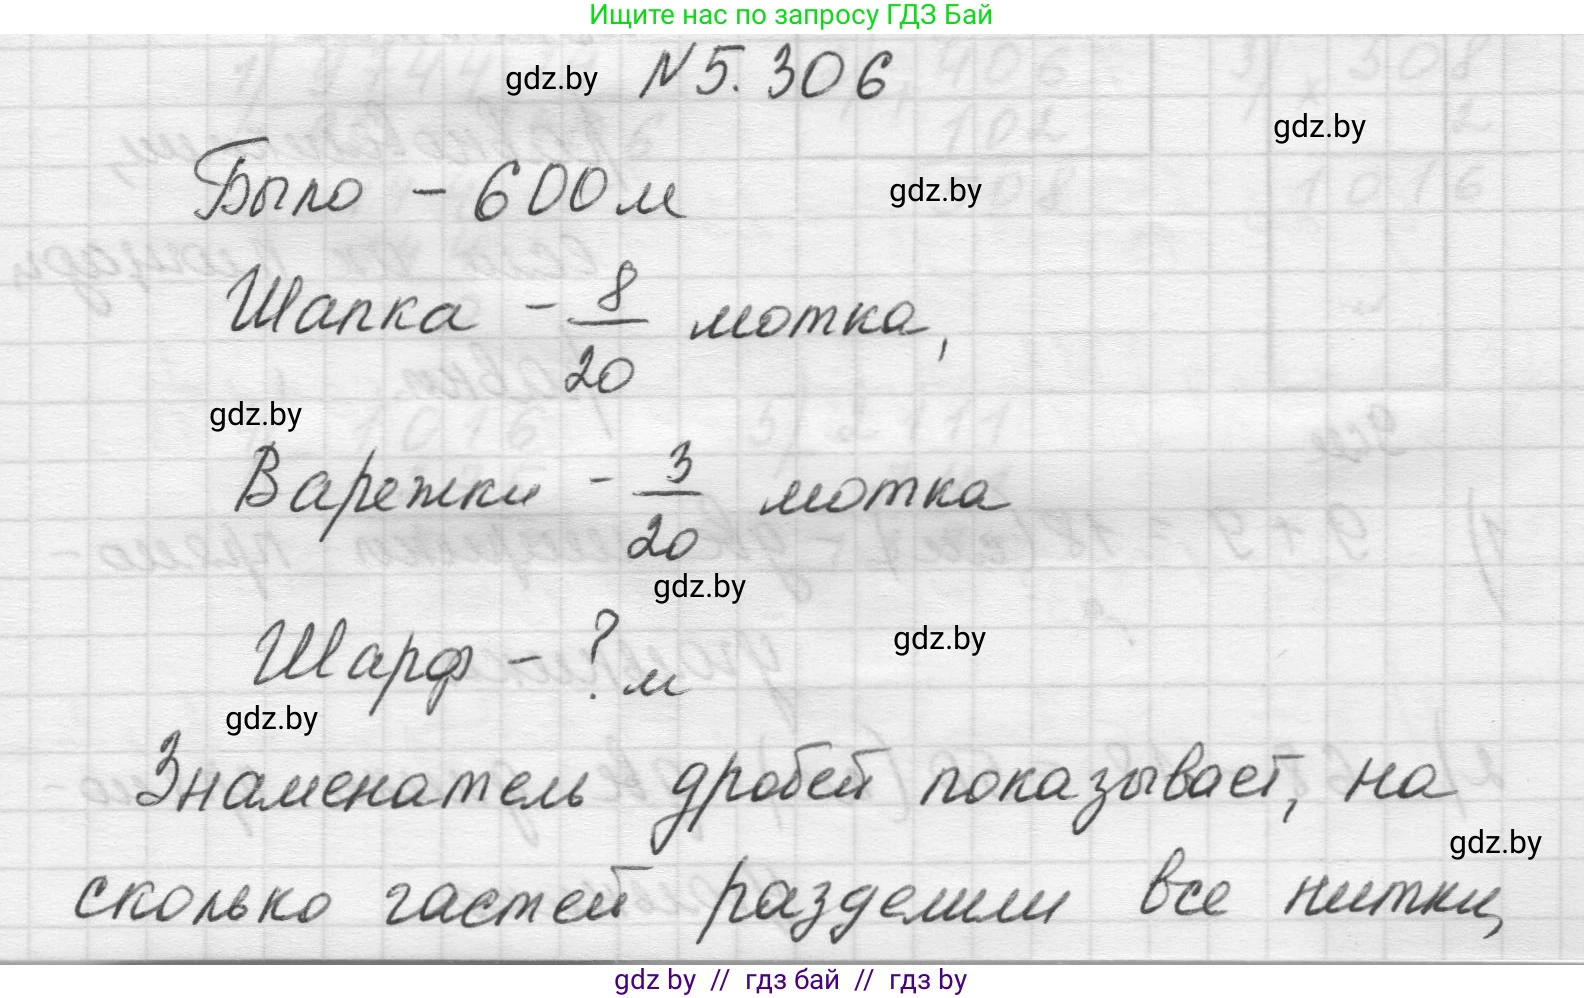 Ищите нас по запросу ГДЗ Бай
gdz.by № 5.306
gdz.by
Было - 600 м
gdz.by
Шапка - 8/20 мотка,
gdz.by
Варежки - 3/20 мотка
gdz.by
Шарф - ? м
gdz.by
gdz.by
Знаменатель дробей показывает, на
gdz.by
сколько частей разделили все нитки,
gdz by // гдз бай // гдз by